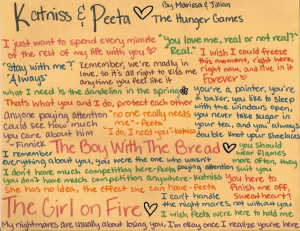 Katniss & Peeta
By Marissa & Jillian
The Hunger Games
I just want to spend every minute
of the rest of my life with you
"You love me, real or not real?"
Real."
"Stay with me?"
"Always"
Remember, we're madly in
love, so it's all right to kiss me
anytime you feel like it
I wish I could freeze
this moment, right here,
right now, and live in it
Forever
What I need is the dandelion in the spring
Thats what you and I do, protect each other
you're a painter, you're
a baker, you like to sleep
with the windows open,
you never take sugar in
your tea, and you always
double knot your shoelaces
anyone paying attention
could see how much
you care about him
-Finnick
"no one really needs
me" -Peeta
"I do, I need you" -Katniss
The Boy With The Bread
you should
wear flames
more often, they
suit you
I remember
everything about you, you were the one who wasn't
paying attention
I don't have much competition here -Peeta
you don't have much competition anywhere -Katniss
she has no idea, the effect she can have -Peeta
You here to
finish me off,
sweetheart?
The Girl on Fire
I can't handle
the nightmares without you
I wish Peeta were here to hold me
My nightmares are usually about losing you, I'm okay once I realize you're here